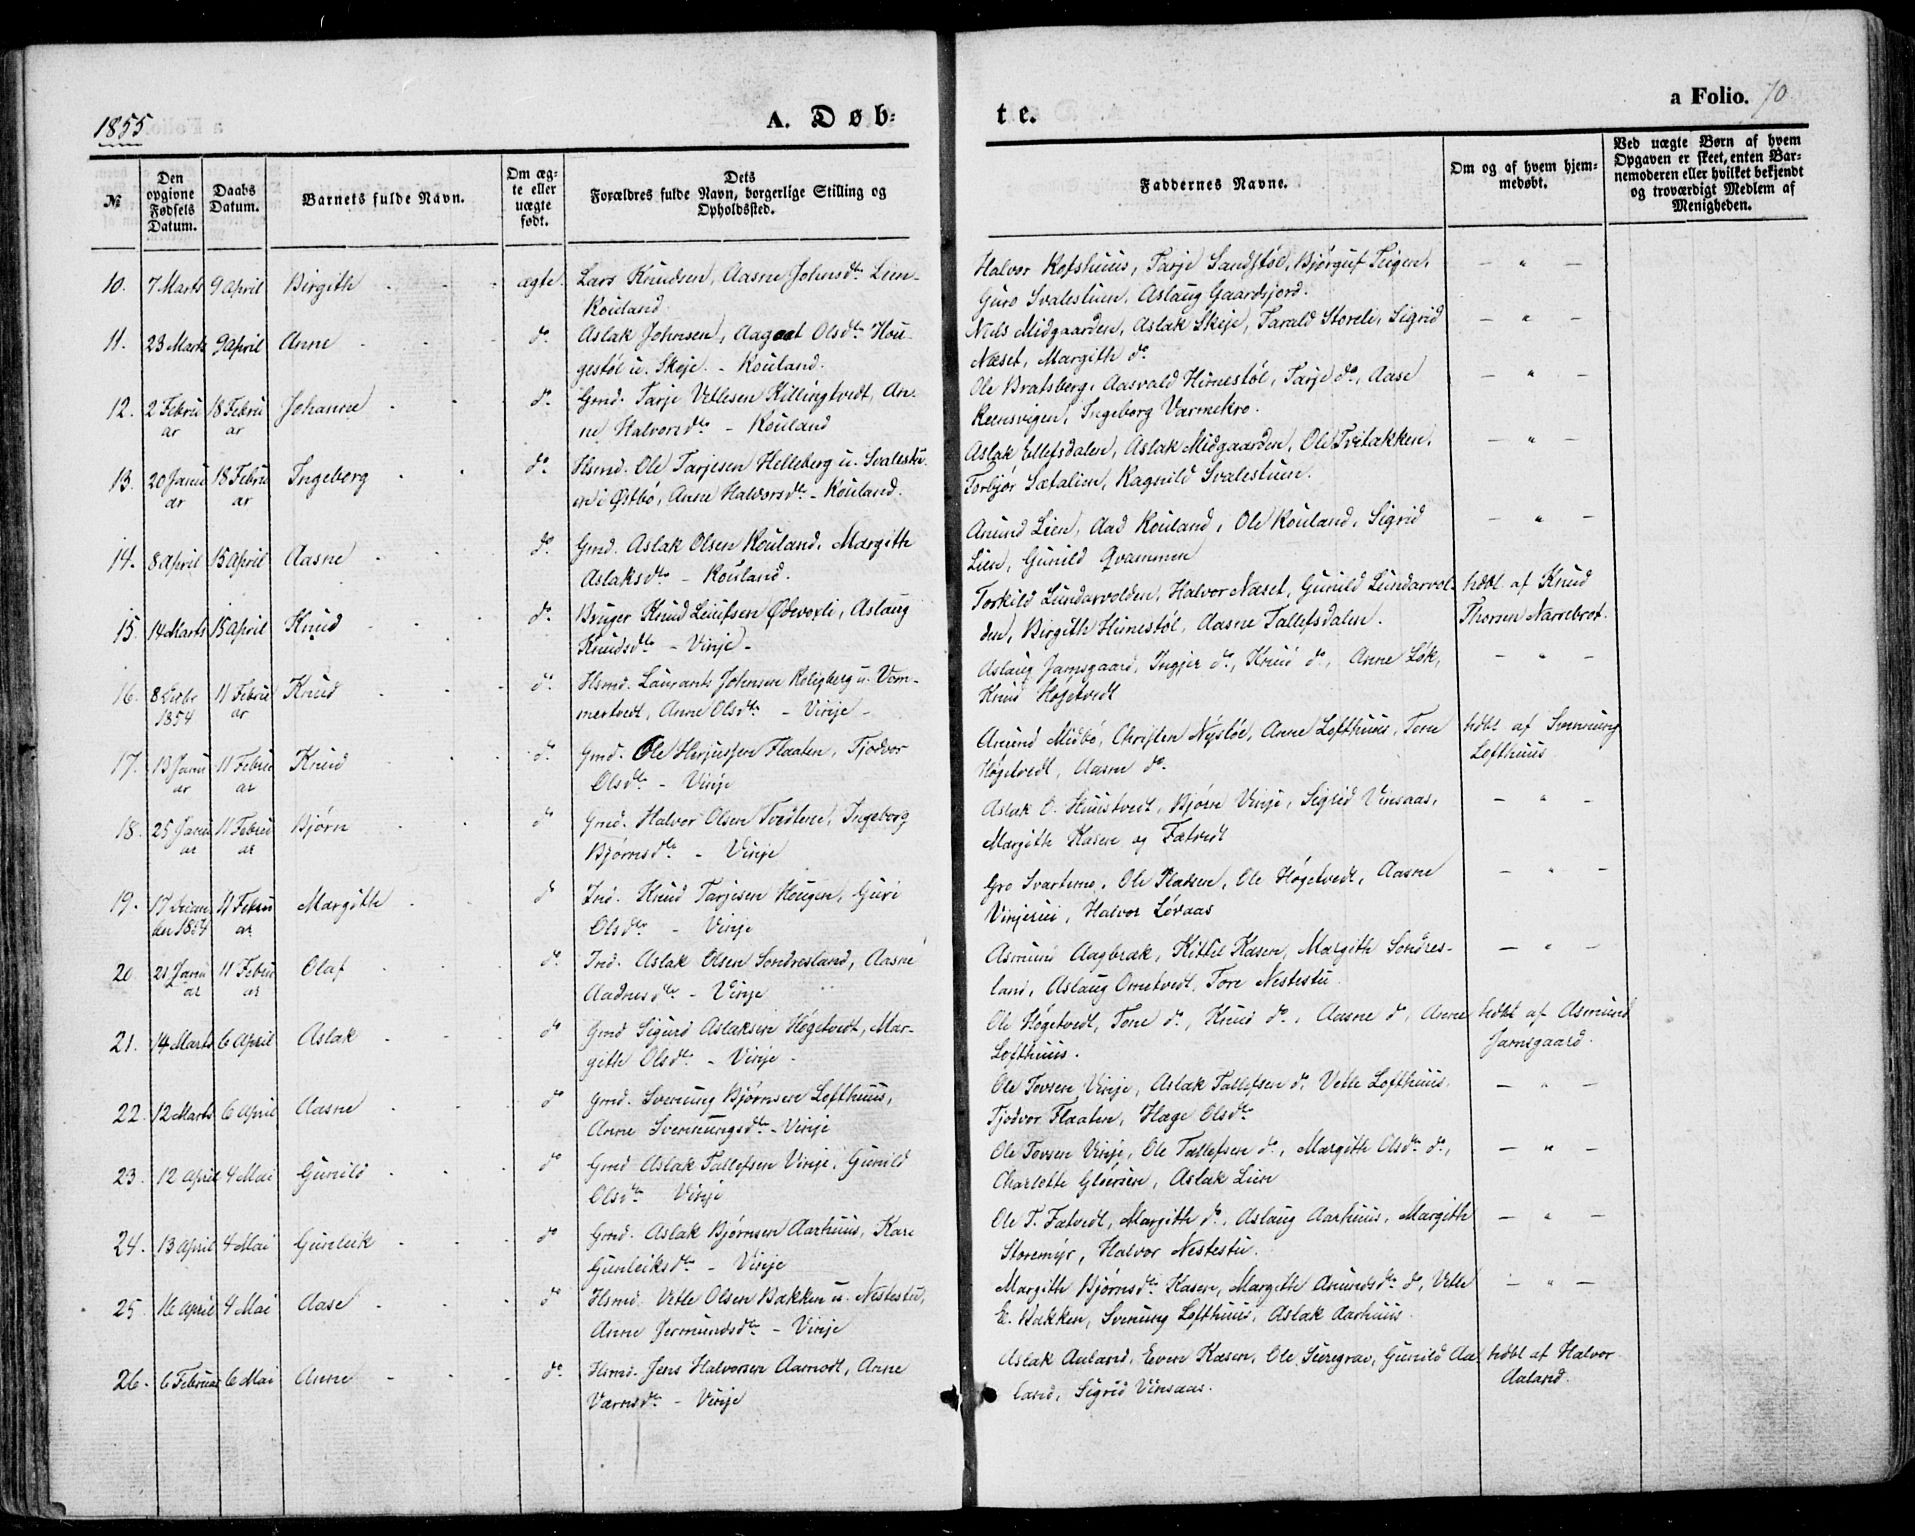 1855
A. Døb-
te.
a Folio. 70
№
Den opgivne Fødsels Datum.
Daabs Datum.
Barnets fulde Navn.
Om ægte eller uægte født.
Dets Forældres fulde Navn, borgerlige Stilling og Opholdssted.
Faddernes Navne.
Om og af hvem hjemmedøbt.
Ved uægte Børn af hvem Opgaven er skeet, enten Barnemoderen eller hvilket bekjendt og troværdigt Medlem af Menigheden.
10. 7 Marts 9 April Birgith ægte. Lars Knudsen, Aasne Johnsdtr Lien - Rouland
Halvor Kostveit, Tarje Sandstøl, Bjørguf Teigen,
Guro Svalestuen, Aslaug Gaardsjord.
11. 23 Marts 9 April Anne do. Aslak Johnsen, Aagaat Olsdtr Hou-
gestøl u. Skeje. - Rouland.
Niels Midgaarden, Aslak Skeje, Tarald Storeli, Sigrid
Næset, Margith do
12. 2 Febru 18 Febru Johanne do. Gmd. Tarje Vetlesen Killingtvedt, An-
ar ar ne Halvorsdtr - Rouland
Ole Bratsberg, Aasvald Hirnestøl, Tarje do, Aase
Reensvigen, Ingeborg Varmekro.
13. 20 Janu 18 Febru Ingeborg do. Hsmd. Ole Tarjesen Helleberg u. Svalestu-
ar ar en i Østbø, Anne Halvorsdtr - Rouland.
Aslak Ellefsdalen, Aslak Midgaarden, Ole Tvilakken,
Torbjør Sætalien, Ragnild Svalestuen.
14. 8 April 15 April Aasne do. Gmd. Aslak Olsen Rouland, Margith
Aslaksdtr - Rouland.
Anund Lien, Aad Rouland, Ole Rouland, Sigrid
Lien, Gunild Qvammen
15. 14 Marts 15 April Knud do. Bruger Knud Leiufsen Ødevoxli, Aslaug
Knudsdtr - Vinje -
Torkild Lundarvolden, Halvor Næset, Gunild Lundarvol-
den, Birgith Hirnestøl, Aasne Tallefsdalen.
hdbt af Knud
Thorsen Narrebrot.
16. 8 Decbr 11 Febru Knud do. Hsmd. Laurants Johnsen Roligberg u. Vem-
1854 ar mertvedt, Anne Olsdtr - Vinje -
Aslaug Jamsgaard, Ingjer do, Knud do, Anne Løk,
Knud Høgetvedt
17. 13 Janu 11 Febru Knud do. Gmd. Ole Herjusfsen Flaaten, Tjodvor
ar ar Olsdtr - Vinje
Anund Midbø, Christen Nystøl, Anne Lofthuus, Tone
Høgetvedt, Aasne do.
hdbt af Svenung
Lofthuus
18. 25 Janu 11 Febru Bjørn do Gmd. Halvor Olsen Tvedtene, Ingeborg
ar ar Bjørnsdtr - Vinje
Aslak O. Huustvedt, Bjørn Vinje, Sigrid Vinsaas,
Margith Kasen og Fætvedt
19. 17 Decem 11 Febru Margith do Ind. Knud Tarjesen Hougen, Guri
ber 1854 ar Olsdtr - Vinje
Gro Svartemo, Ole Pladsen, Ole Høgetvedt, Aasne
Vinjerui, Halvor Løvaas
20 21 Janu 11 Febru Olaf do. Ind. Aslak Olsen Sondresland, Aasne
ar ar Aadnesdtr - Vinje
Asmund Aagbræk, Kittil Kasen, Margith Sondres-
land, Aslaug Ometvedt, Tore Nestestu
21. 14 Marts 6 April Aslak do Gmd Sigurd Aslaksen Høgetvedt, Mar-
gith Olsdtr - Vinje -
Ole Høgetvedt, Tone do, Knud do, Aasne do, Anne
Lofthuus.
hdbt af Asmund
Jamsgaard.
22. 12 Marts 6 April Aasne do Gmd. Svenung Bjørnsen Lofthuus,
Anne Svennungsdtr - Vinje
Ole Tovsen Vinje, Aslak Tallefsen do, Vetle Lofthuus,
Tjodvor Flaaten, Hæge Olsdtr
23. 12 April 4 Mai Gunild do Gmd Aslak Tallefsen Vinje, Gunild
Olsdtr Vinje
Ole Tovsen Vinje, Ole Tallefsen do, Margith Olsdtr do,
Charlotte Gløersen, Aslak Lien
24. 13 April 4 Mai Gunleik do Gmd. Aslak Bjørnsen Aarhuus, Kare
Gunleiksdtr - Vinje
Ole T. Fætvedt, Margith do, Aslaug Aarhuus, Margith
Storemyr, Halvor Nestestu.
25. 16 April 4 Mai Aase do Hsmd. Vetle Olsen Bakken u. Nestestu,
Anne Jermundsdtr - Vinje
Margith Bjørnsdtr Kasen, Margith Anundsdtr do, Vetle
E. Bakken, Svenung Lofthuus, Aslak Aarhuus.
26. 6 Februar 6 Mai Anne do. Hsmd. Jens Halvorsen Aamodt, Anne
Værnsdtr - Vinje
Aslak Aaland, Even Kasen, Ole Suregrav, Gunild Aa-
land, Sigrid Vinsaas.
hdbt af Halvor
Aaland.